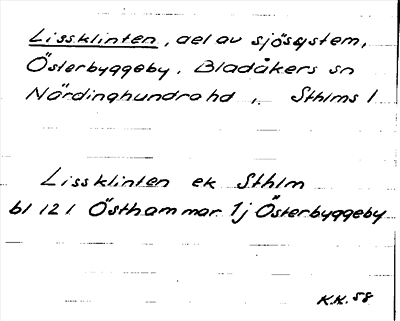 Lissklinten, del av sjösystem,
Österbyggeby, Bladåkers sn
Närdinghundra hd, Sthlms l
Lissklinten ek Sthlm
bl 121 Östhammar 1j Österbyggeby
K.H. 58